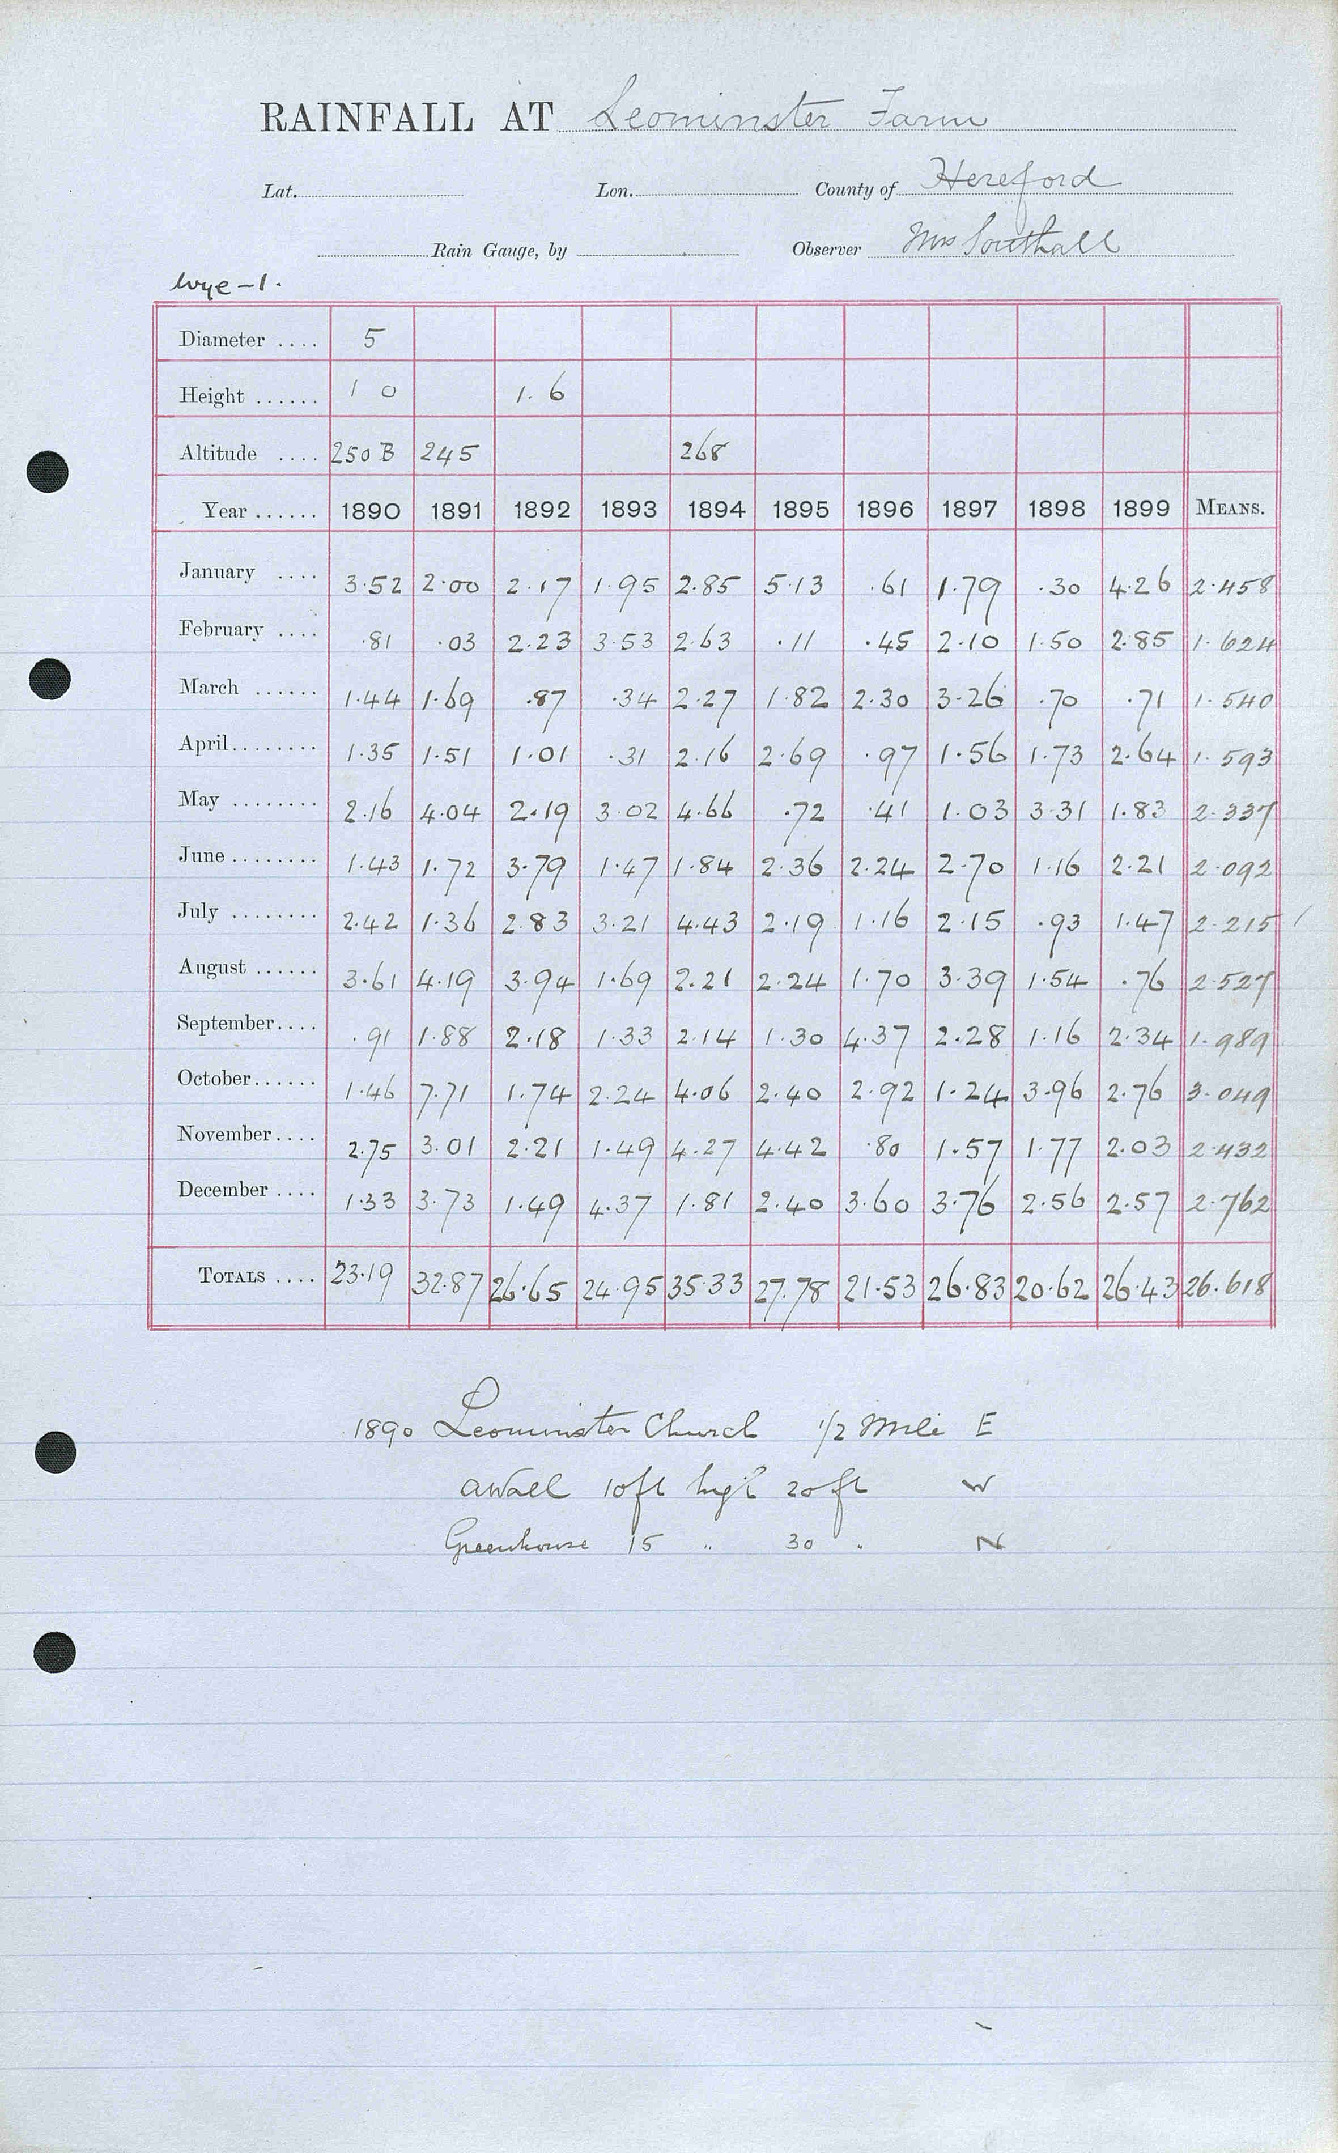 RAINFALL AT Leominster Farm
Lat. Lon. County of Hereford
Rain Gauge, by Observer Mrs Southall
Wye-1.
Diameter .... 5
Height ...... 1 0 1.6
Altitude .... 250 B 245 268
Year ...... 1890 1891 1892 1893 1894 1895 1896 1897 1898 1899 MEANS.
January .... 3.52 2.00 2.17 1.95 2.85 5.13 .61 1.79 .30 4.26 2.458
February .... .81 .03 2.23 3.53 2.63 .11 .45 2.10 1.50 2.85 1.624
March ...... 1.44 1.69 .87 .34 2.27 1.82 2.30 3.26 .70 .71 1.540
April........ 1.35 1.51 1.01 .31 2.16 2.69 .97 1.56 1.73 2.64 1.593
May ........ 2.16 4.04 2.19 3.02 4.66 .72 .41 1.03 3.31 1.83 2.337
June ........ 1.43 1.72 3.79 1.47 1.84 2.36 2.24 2.70 1.16 2.21 2.092
July ........ 2.42 1.36 2.83 3.21 4.43 2.19 1.16 2.15 .93 1.47 2.215
August ...... 3.61 4.19 3.94 1.69 2.21 2.24 1.70 3.39 1.54 .76 2.527
September.... .91 1.88 2.18 1.33 2.14 1.30 4.37 2.28 1.16 2.34 1.989
October...... 1.46 7.71 1.74 2.24 4.06 2.40 2.92 1.24 3.96 2.76 3.049
November.... 2.75 3.01 2.21 1.49 4.27 4.42 .80 1.57 1.77 2.03 2.432
December .... 1.33 3.73 1.49 4.37 1.81 2.40 3.60 3.76 2.56 2.57 2.762
TOTALS .... 23.19 32.87 26.65 24.95 35.33 27.78 21.53 26.83 20.62 26.43 26.618
1890 Leominster Church 1/2 Mile E
a Wall 10ft high 20ft W
Greenhouse 15 " 30 " N